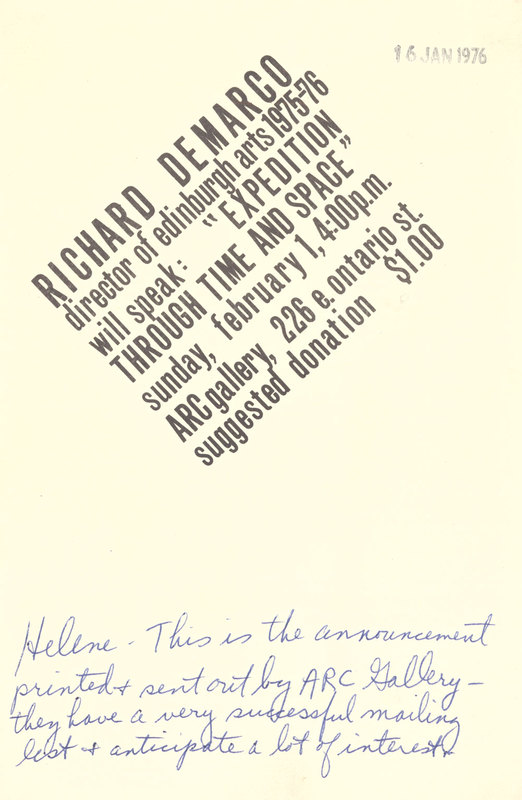 16 JAN 1976
RICHARD DEMARCO
director of edinburgh arts 1975-76
will speak: "EXPEDITION
THROUGH TIME AND SPACE"
sunday, february 1, 4:00p.m.
ARC gallery, 226 e. ontario st.
suggested donation $1.00
Helene - This is the announcement
printed & sent out by ARC Gallery -
they have a very successful mailing
list & anticipate a lot of interest.